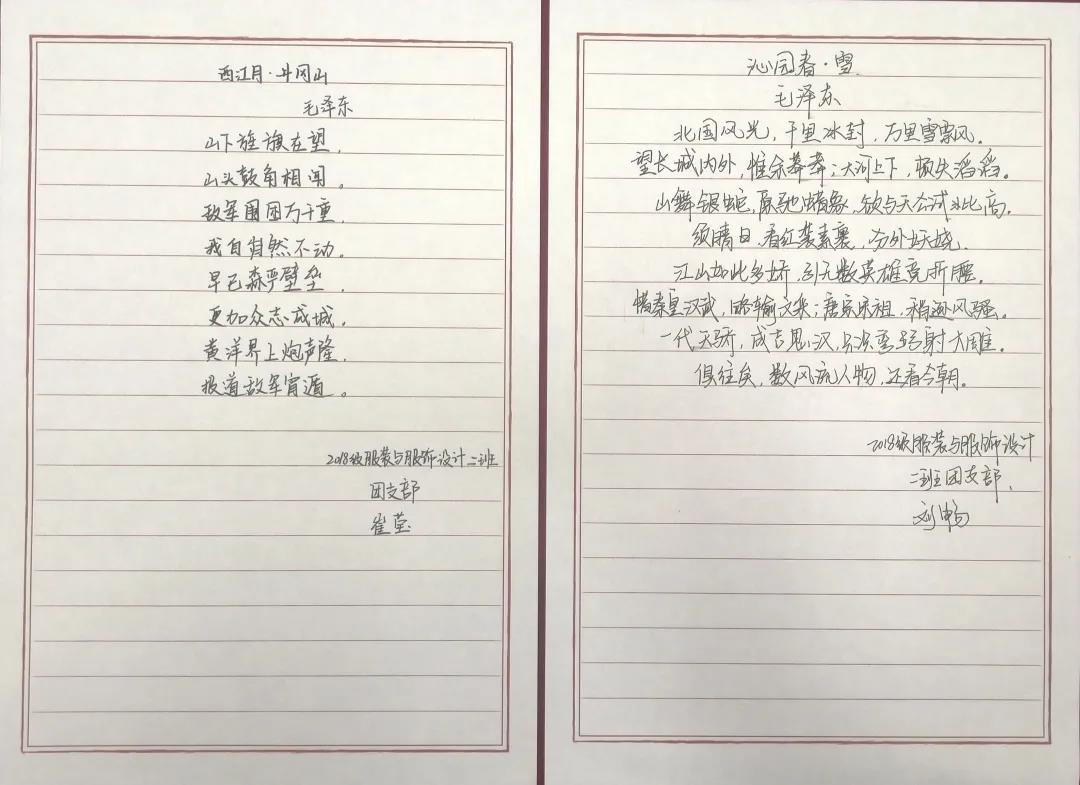 西江月·井冈山
毛泽东
山下旌旗在望，
山头鼓角相闻。
敌军围困万千重，
我自岿然不动。
早已森严壁垒，
更加众志成城，
黄洋界上炮声隆，
报道敌军宵遁。
2018级服装与服饰设计二班
团支部
崔莹
沁园春·雪
毛泽东
北国风光，千里冰封，万里雪飘。
望长城内外，惟余莽莽；大河上下，顿失滔滔。
山舞银蛇，原驰蜡象，欲与天公试比高。
须晴日，看红装素裹，分外妖娆。
江山如此多娇，引无数英雄竞折腰。
惜秦皇汉武，略输文采；唐宗宋祖，稍逊风骚。
一代天骄，成吉思汗，只识弯弓射大雕。
俱往矣，数风流人物，还看今朝。
2018级服装与服饰设计
二班团支部
刘畅